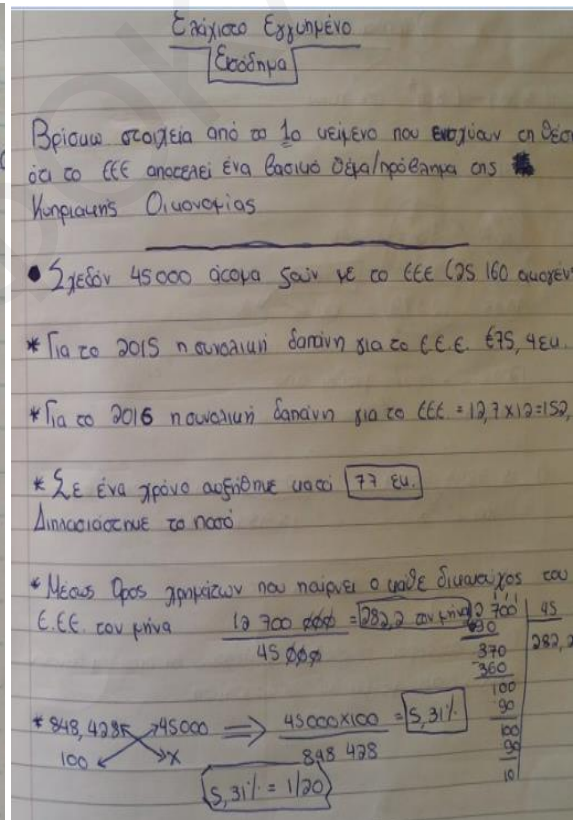 Ελάχιστο Εγγυημένο
Εισόδημα
Βρίσκω στοιχεία από το 1ο κείμενο που ενισχύουν τη θέση
ότι το ΕΕΕ αποτελεί ένα βασικό θέμα/πρόβλημα της
Κυπριακής Οικονομίας
• Σχεδόν 45000 άτομα ζουν με το ΕΕΕ (25 160
* Για το 2015 η συνολική δαπάνη για το Ε.Ε.Ε. €75, 4εκ.
* Για το 2016 η συνολική δαπάνη για το ΕΕΕ = 12,7 x 12 = 152,
* Σε ένα χρόνο αυξήθηκε κατά 77 εκ.
Διπλασιάστηκε το ποσό
* Μέσος Όρος χρημάτων που παίρνει ο κάθε δικαιούχος του
Ε.ΕΕ. τον μήνα 12 700 000 = 282,2 τον μήνα
45 000
12 700 45
90 282,2
370
360
100
90
100
90
10
* 848,428 45000 ⇒ 45000x100 = 5,31%
100 x 848 428
5,31% = 1/20